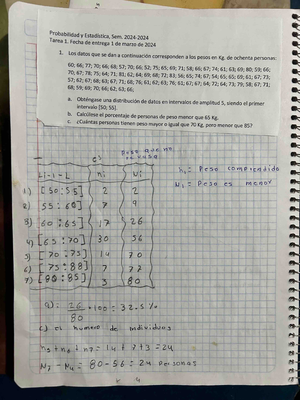 Probabilidad y Estadística, Sem. 2024-2024
Tarea 1. Fecha de entrega 1 de marzo de 2024
1. Los datos que se dan a continuación corresponden a los pesos en Kg. de ochenta personas:
60; 66; 77; 70; 66; 68; 57; 70; 66; 52; 75; 65; 69; 71; 58; 66; 67; 74; 61; 63; 69; 80; 59; 66;
70; 67; 78; 75; 64; 71; 81; 62; 64; 69; 68; 72; 83; 56; 65; 74; 67; 54; 65; 65; 69; 61; 67; 73;
57; 62; 67; 68; 63; 67; 71; 68; 76; 61; 62; 63; 76; 61; 67; 67; 64; 72; 64; 73; 79; 58; 67; 71;
68; 59; 69; 70; 66; 62; 63; 66;
a. Obténgase una distribución de datos en intervalos de amplitud 5, siendo el primer
intervalo [50; 55].
b. Calcúlese el porcentaje de personas de peso menor que 65 Kg.
c. ¿Cuántas personas tienen peso mayor o igual que 70 Kg. pero menor que 85?
Peso que no
nᵢ = Peso comprendido
Li-1 - L nᵢ Nᵢ
Nᵢ = Peso es menor
1) [50:55] 2 2
2) 55:60] 7 9
3) [60:65] 17 26
4) [65:70] 30 56
5) [70:75] 14 70
6) [75:88] 7 77
7) [80:85] 3 80
26/80 * 100 = 32.5 %
c) El numero de individuos
n5 + n6 + n7 = 14 + 7 + 3 = 24
N7 - N4 = 80 - 56 = 24 personas